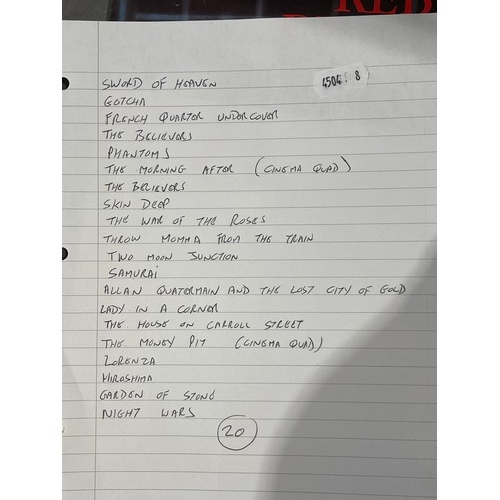 REB
4504 8
SWORD OF HEAVEN
GOTCHA
FRENCH QUARTER UNDERCOVER
THE BELIEVERS
PHANTOMS
THE MORNING AFTER (CINEMA QUAD)
THE BELIEVERS
SKIN DEEP
THE WAR OF THE ROSES
THROW MOMMA FROM THE TRAIN
TWO MOON JUNCTION
SAMURAI
ALLAN QUATERMAIN AND THE LOST CITY OF GOLD
LADY IN A CORNER
THE HOUSE ON CARROLL STREET
THE MONEY PIT (CINEMA QUAD)
LORENZA
HIROSHIMA
GARDEN OF STONE
NIGHT WARS
20